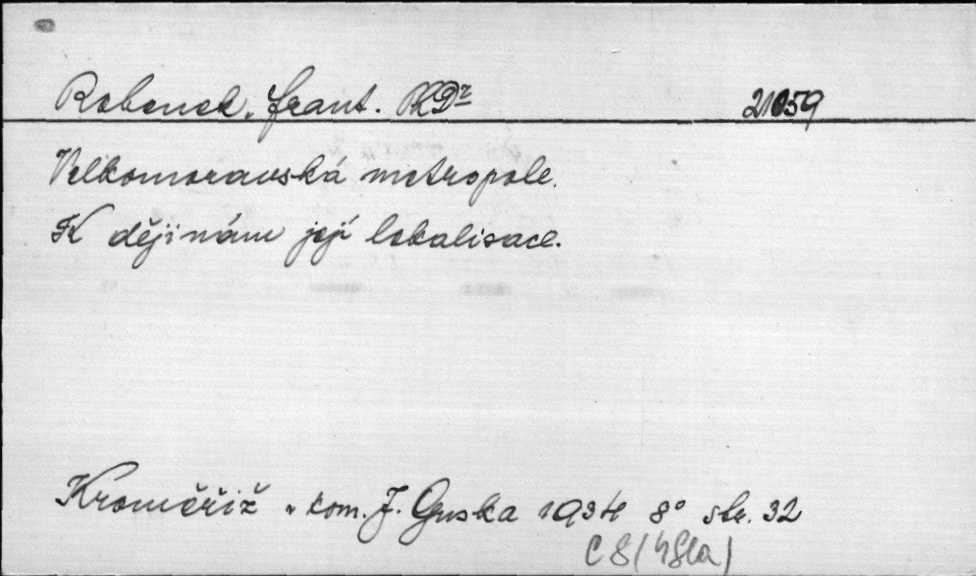 Robenek, Frant. PhDr 21059
Velkomoravská metropole.
K dějinám její lokalisace.
Kroměříž, kom. J. Guska 1934 8° str. 32
C 8 (48la)